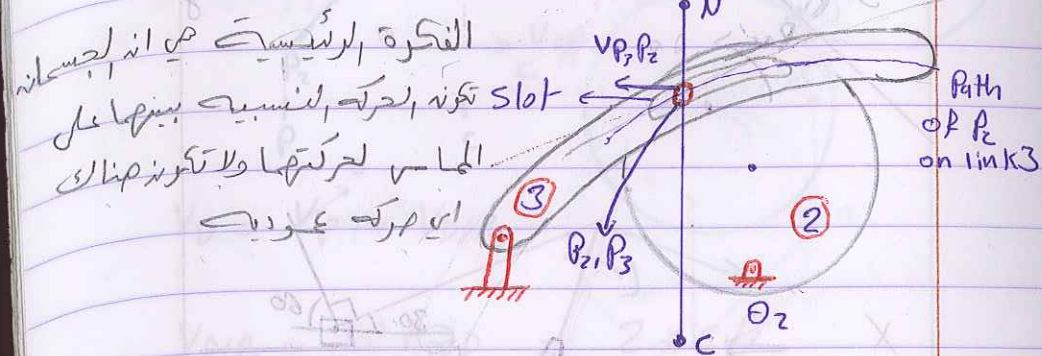 الفكرة الرئيسية هي انه الجسمان
تكونه الحركه النسبيه بينهما على
المماس لحركتهما ولا تكونه هناك
اي حركه عموديه
N
VP₃P₂
Slot
Path
of P₂
on link3
3
2
P₂, P₃
O₂
C
30
60
X